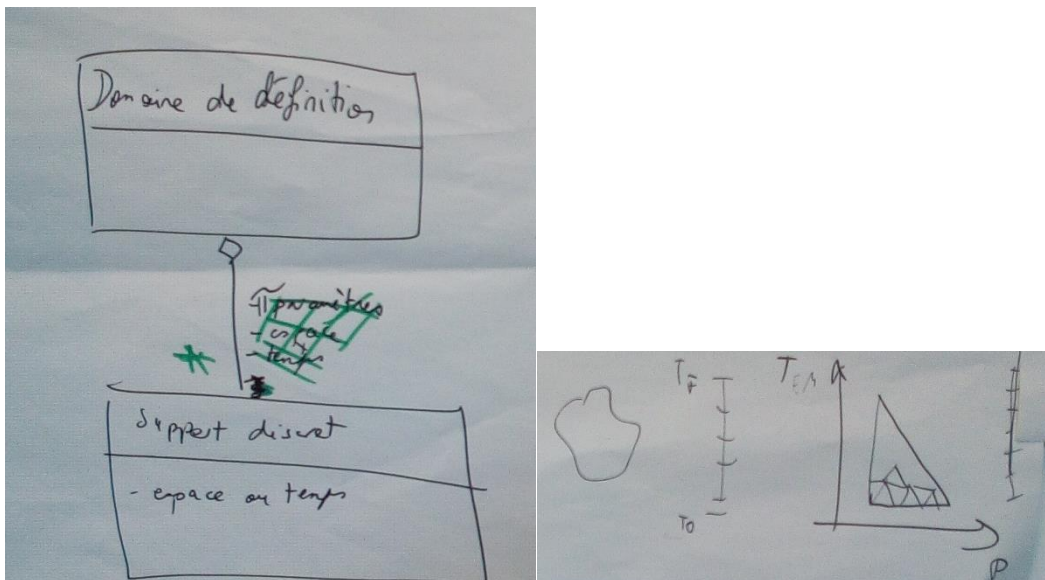 Domaine de définition
paramètres
- espace
- temps
*
Support discret
- espace ou temps
TF
T0
P